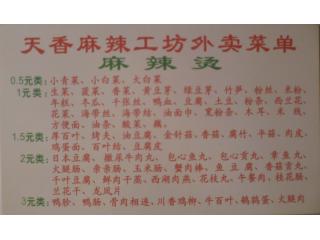 天香麻辣工坊外卖菜单
麻辣烫
0.5元类：小青菜、小白菜、大白菜
1元类：生菜、菠菜、香菜、黄豆芽、绿豆芽、竹笋、粉丝、米粉、
年糕、冬瓜、千张丝、鸭血、豆腐、土豆、粉条、西兰花、
花菜、海带丝、海带结、油面巾、宽粉条、木耳、米线、
方便面、油条、酸菜、藕、
1.5元类：厚百叶、烤夫、油豆腐、金针菇、香菇、腐竹、平菇、肉皮、
鸡蛋面、百叶结、豆腐皮
2元类：日本豆腐、撒尿牛肉丸、包心鱼丸、包心贡丸、章鱼丸、
火腿肠、亲亲肠、玉米肠、蟹肉棒、鱼豆腐、香菇贡丸、
千叶豆腐、鲜肉干蒸、西湖肉燕、花枝丸、午餐肉、桂花肠、
兰花干、龙凤片
3元类：鸭胗、鸭肠、骨肉相连、川香鸡柳、牛百叶、鹌鹑蛋、火腿肉